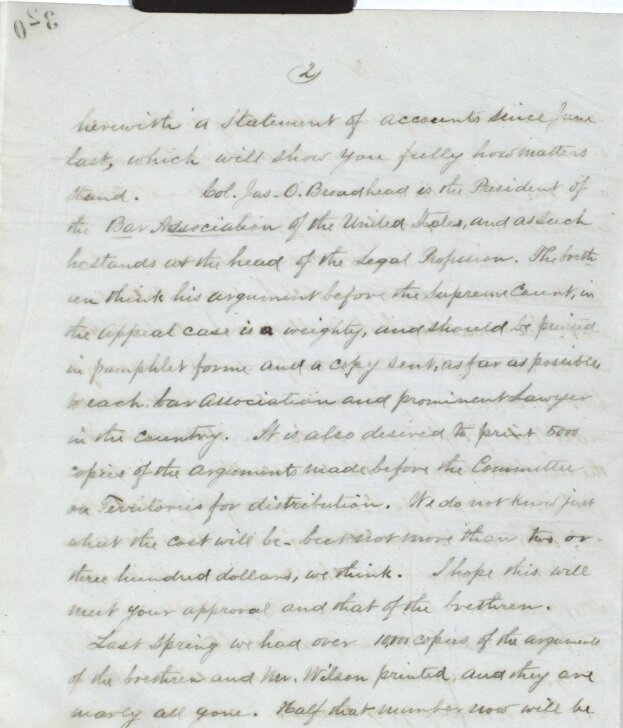 320
2
herewith a Statement of accounts since June
last, which will show you fully how matters
stand. Col. Jas. O. Broadhead is the President of
the Bar Association of the United States, and as such
he stands at the head of the Legal Profession. The breth
ren think his argument before the Supreme Court, in
the appeal case is a weighty, and should be printed
in pamphlet forme and a copy sent, as far as possible,
to each bar Association and prominent Lawyer
in the country. It is also desired to print 5000
copies of the arguments made before the Committee
on Territories for distribution. We do not know just
what the cost will be - but not more than two or
three hundred dollars, we think. I hope this will
meet your approval and that of the brethren.
Last Spring we had over 10,000 copies of the arguments
of the brethren and Mr. Wilson printed, and they are
nearly all gone. Half that number now will be